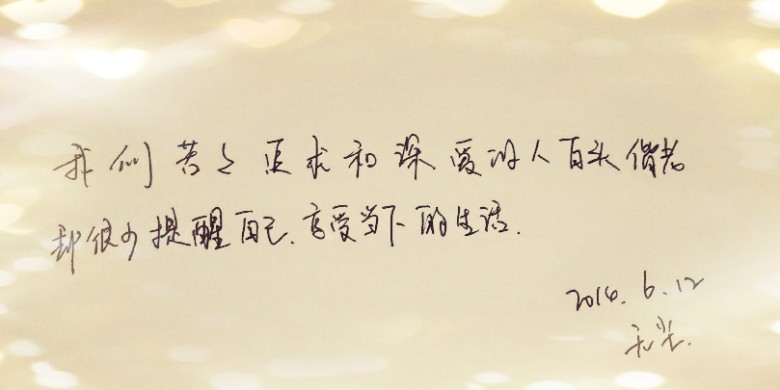 我们苦苦追求和深爱的人白头偕老
却很少提醒自己.享受当下的生活.
2014.6.12